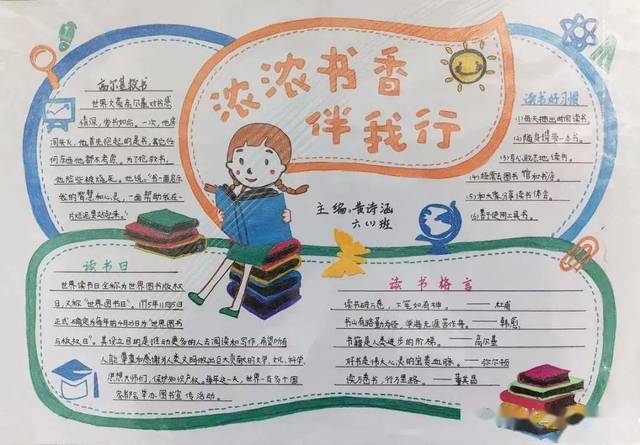 浓浓书香
伴我行
主编:黄诗涵
六(1)班
高尔基救书
世界文豪高尔基对书感
情深,爱书如命。一次,他房
间失火,他首先抱起的是书,其它任
何东西他都不考虑。为了抢救书,
他险些被烧死。他说:“书一面启示
我的智慧和心灵,一面帮助我在一
片
起来。”
读书好习惯
(1)每天抽出时间读书
(2)随身携带一本书。
(3)专心致志地读书。
(4)经常去图书馆和书店。
(5)和大家分享读书体会。
(6)善于使用工具书。
读书日
世界读书日全称为世界图书版权
日,又称“世界图书日”。1995年11月15日
正式确定为每年的4月23日为“世界图书
与版权日”。其设立目的是推动更多的人去阅读和写作,希望所有
人能尊重和感谢为人类文明做出巨大贡献的文学,文化,科学,
思想大师们,保护知识产权。每年这一天,世界一百多个国
举办图书宣传活动。
读书格言
读书破万卷,下笔如有神。——杜甫
书山有路勤为径,学海无涯苦作舟。——韩愈
书籍是人类进步的阶梯。——高尔基
好书是伟大心灵的宝贵血脉。——弥尔顿
读万卷书,行万里路。——董其昌